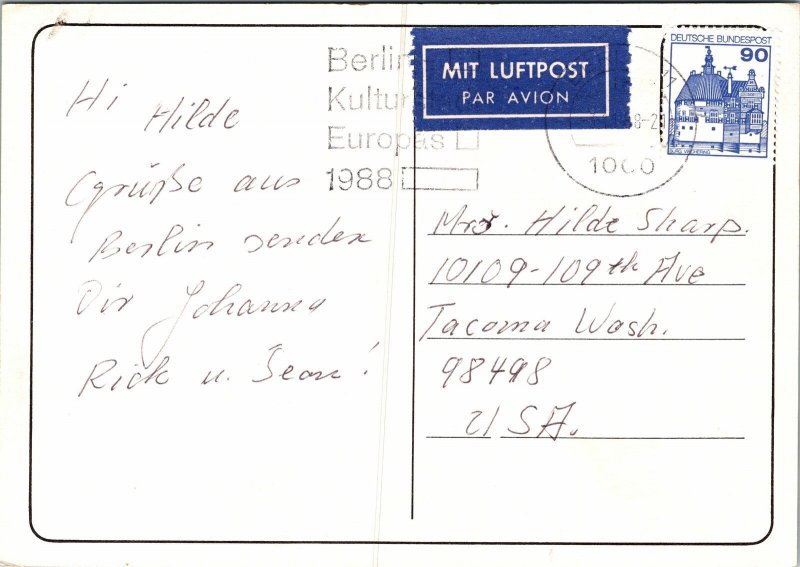 Hi Hilde
Grüße aus
Berlin senden
Dir Johanna
Rick u. Sean!
Berlin
Kulturstadt
Europas
1988
MIT LUFTPOST
PAR AVION
1000
DEUTSCHE BUNDESPOST
90
BURG VISCHERING
Mrs. Hilde Sharp.
10109-109th Ave
Tacoma Wash.
98498
USA.